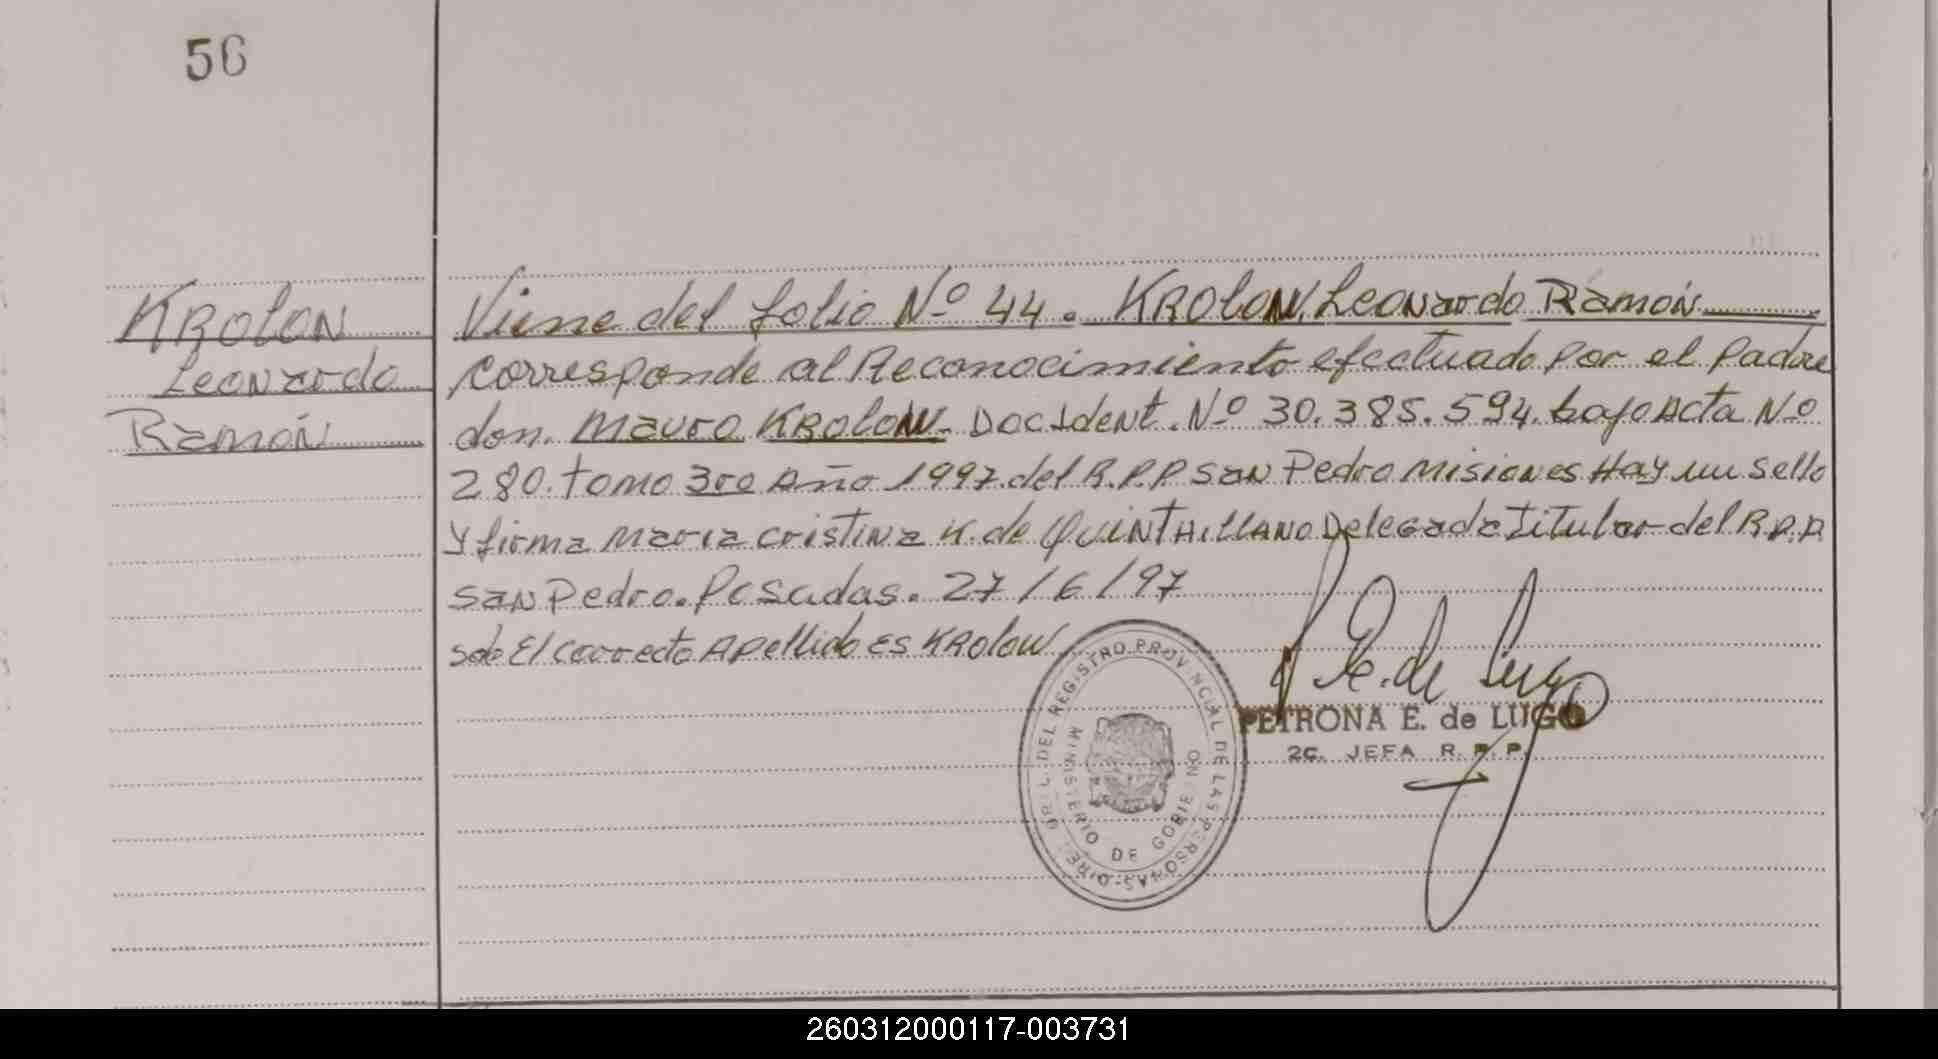 56
KROLON
Leonardo
Ramón
Viene del folio Nº 44. KROLOW, Leonardo Ramón
corresponde al Reconocimiento efectuado por el Padre
don. Mauro KROLOW. Doc Ident. Nº 30.385.594. bajo Acta Nº
280. tomo 3ro Año 1997. del R.P.P. San Pedro Misiones Hay un sello
y firma Maria Cristina K. de QUINTHILLANO Delegada titular del R.P.P.
San Pedro. Posadas. 27/6/97
El correcto Apellido es KROLOW
DEL REGISTRO PROVINCIAL DE LAS PERSONAS
MINISTERIO DE GOBIERNO
P. E. de Lugo
PETRONA E. de LUGO
2C. JEFA R. P. P.
260312000117-003731